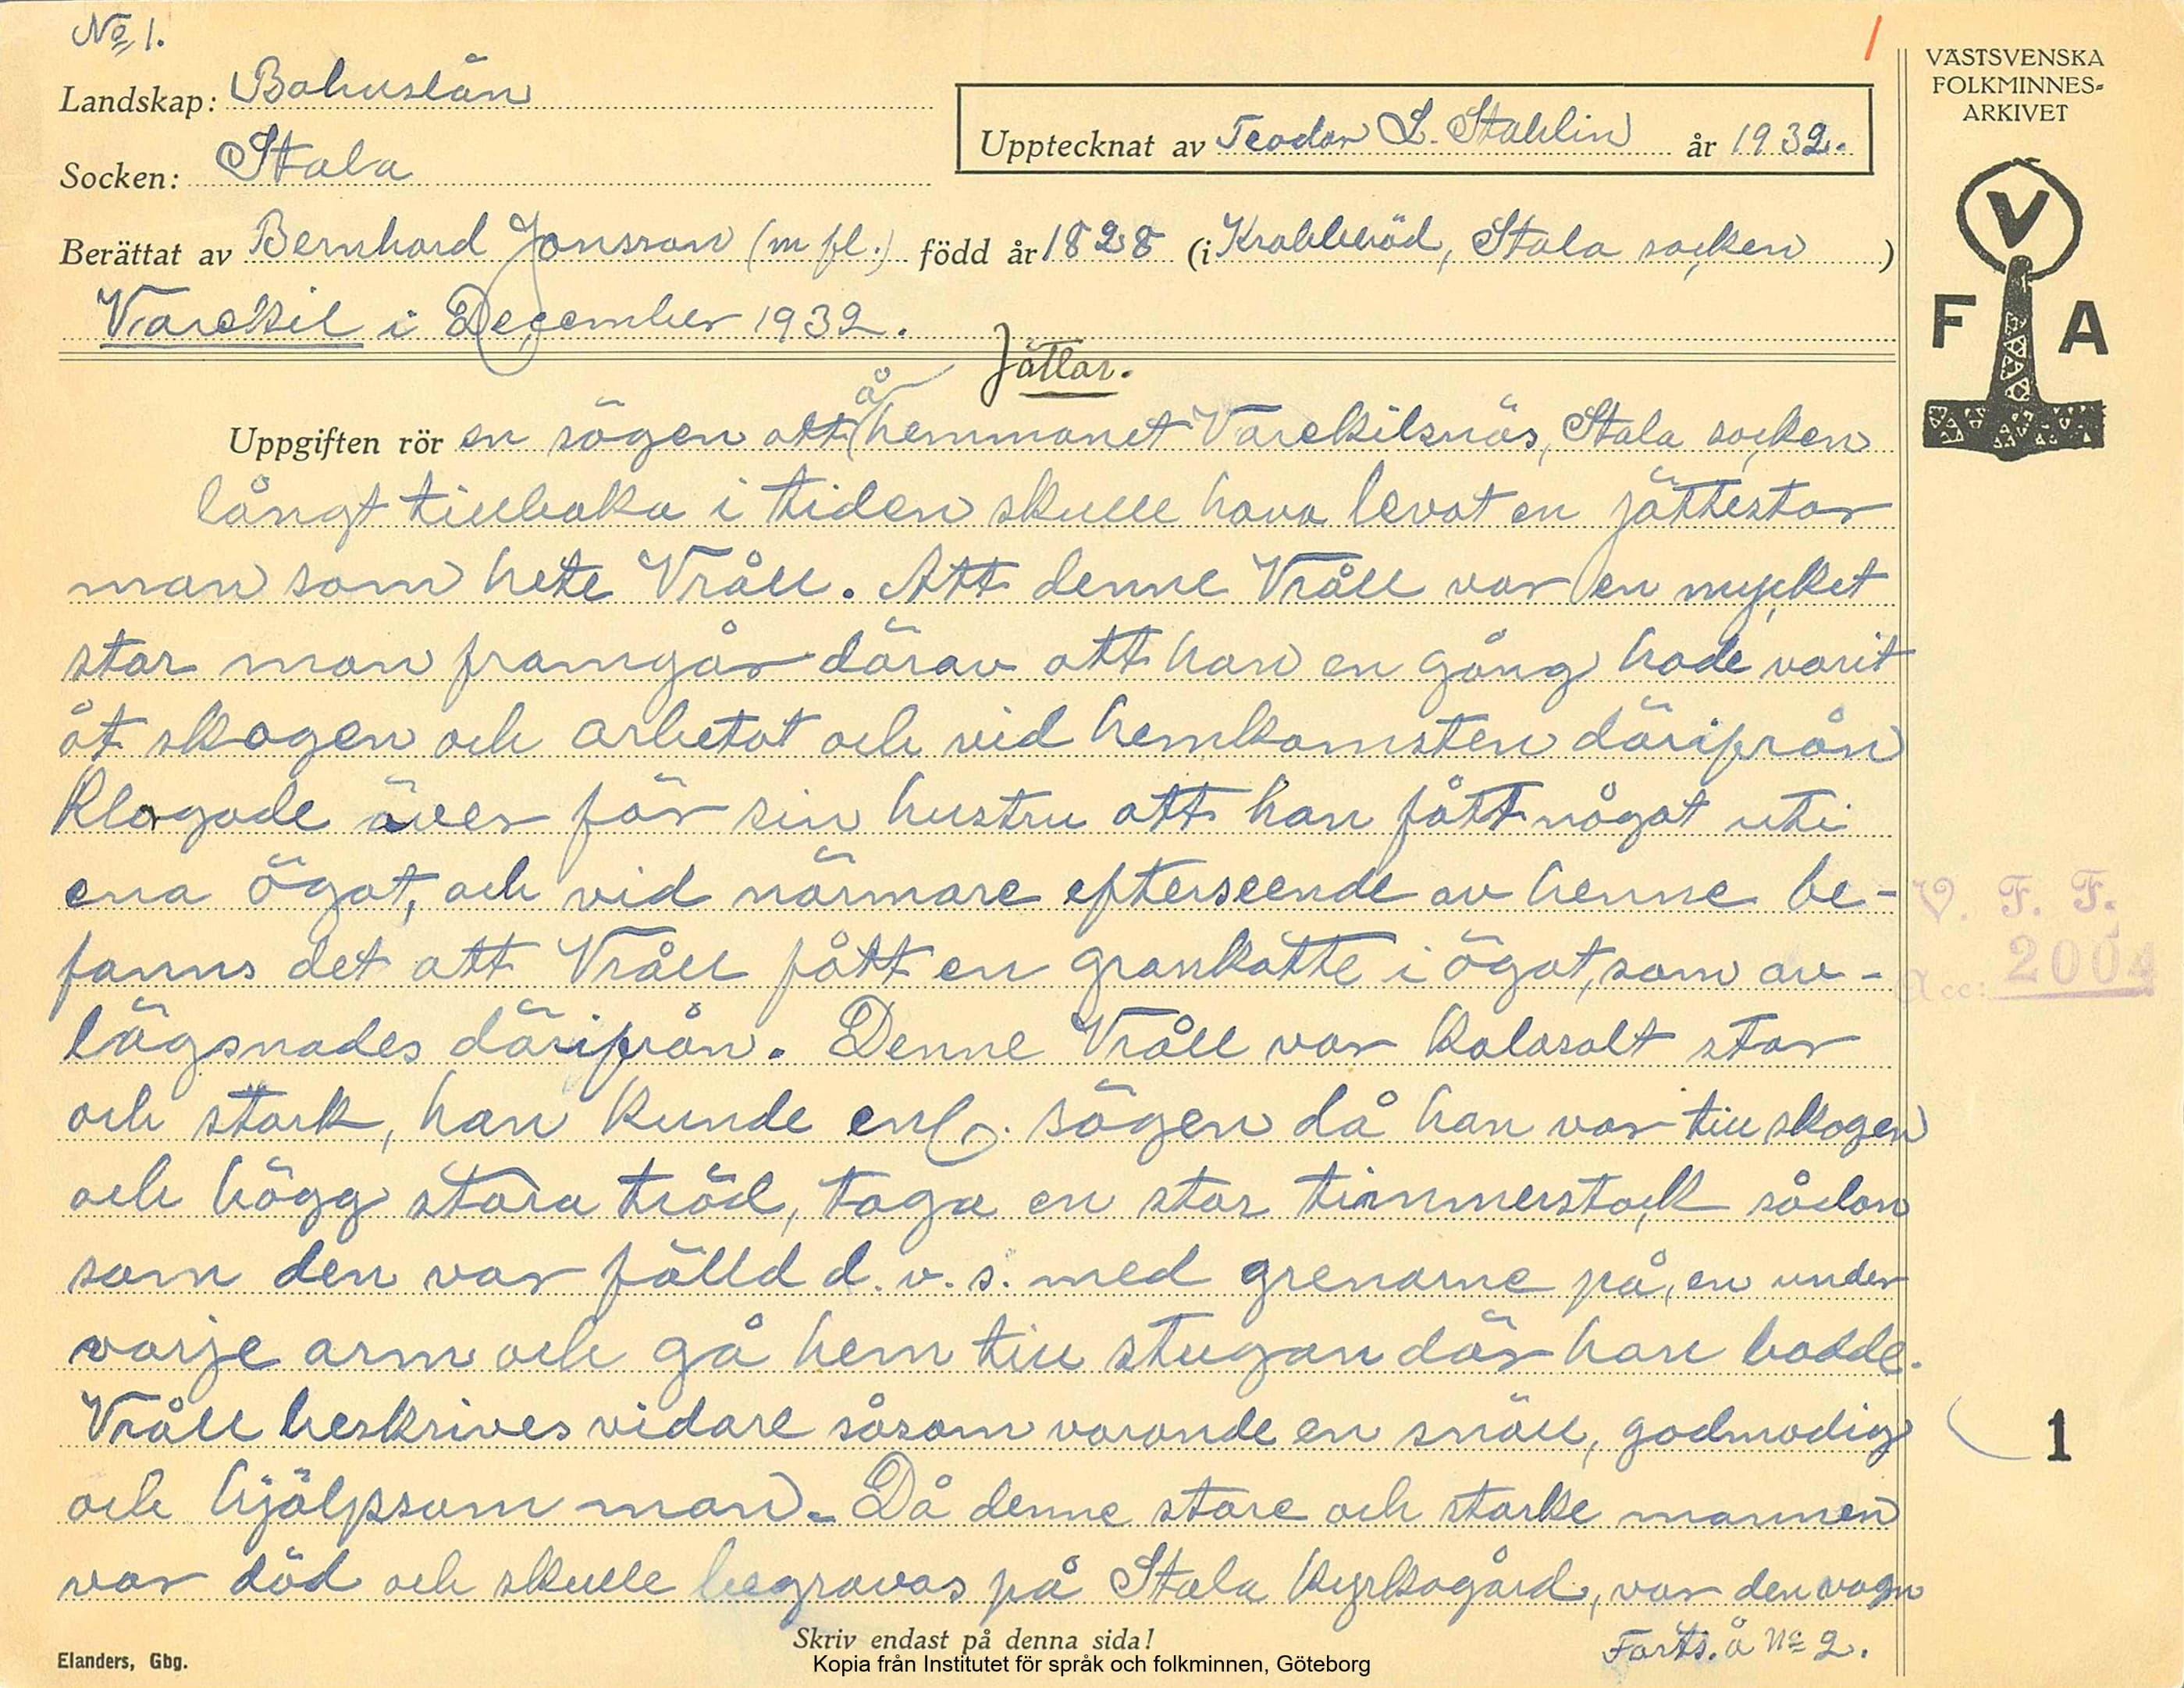 No 1.
Landskap: Bohuslän
Socken: Stala
Upptecknat av Teodor L. Stahlin år 1932.
Berättat av Bernhard Jonsson (m fl.) född år 1828 (i Krabberöd, Stala socken )
Varekil i December 1932.
Jättar.
Uppgiften rör en sägen att å hemmanet Varekilsnäs, Stala socken
långt tillbaka i tiden skulle hava levat en jättestor
man som hete Vråll. Att denne Vråll var en mycket
stor man framgår därav att han en gång hade varit
åt skogen och arbetat och vid hemkomsten därifrån
klagade över för sin hustru att han fått något uti
ena ögat, och vid närmare efterseende av henne be-
fanns det att Vråll fått en grankotte i ögat, som av-
lägsnades därifrån. Denne Vråll var kolosalt stor
och stark, han kunde enl. sägen då han var till skogen
och högg stora träd, taga en stor timmerstock sådan
som den var fälld d.v.s. med grenarne på, en under
varje arm och gå hem till stugan där han bodde.
Vråll beskrives vidare såsom varande en snäll, godmodig
och hjälpsam man. Då denne store och starke mannen
var död och skulle begravas på Stala kyrkogård, var den vagn
Forts. å No 2.
Skriv endast på denna sida!
Elanders, Gbg.
Kopia från Institutet för språk och folkminnen, Göteborg
VÄSTSVENSKA
FOLKMINNES-
ARKIVET
V
F A
V. F. F.
Acc: 2004
1